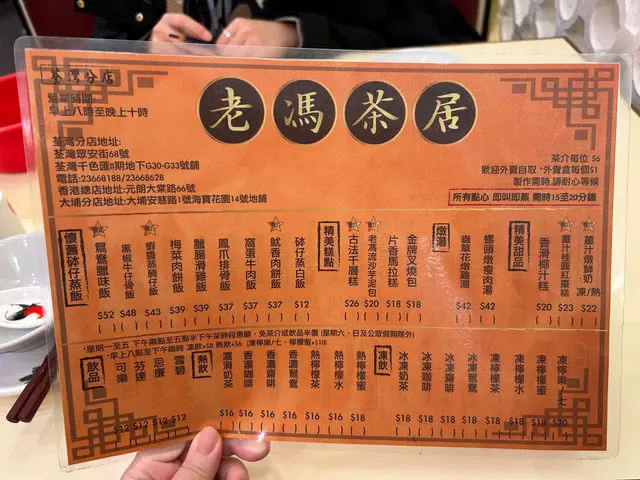 荃灣分店
營業時間:
早上八時至晚上十時
老馮茶居
荃灣分店地址:
荃灣眾安街68號
荃灣千色匯II期地下G30-G33號舖
電話:23668188/23668628
香港總店地址:元朗大棠路66號
大埔分店地址:大埔安慈路1號海寶花園14號地舖
茶介每位 $6
歡迎外賣自取 *外賣盒每個$1
製作需時,請耐心等候
所有點心 即叫即蒸 需時15至20分鐘
懷舊砵仔蒸飯
鴛鴦臘味飯 $52
黑椒牛仔骨飯 $48
蝦醬蒸腩仔飯 $43
梅菜肉餅飯 $39
臘腸滑雞飯 $39
鳳爪排骨飯 $37
窩蛋牛肉飯 $37
魷魚肉餅飯 $37
砵仔蒸白飯 $12
精美糕點
古法千層糕 $26
老馮流沙芋泥包 $20
片香馬拉糕 $18
金牌叉燒包 $18
燉湯
蟲草花燉雞湯 $42
螺頭燉瘦肉湯 $42
精美甜品
香滑椰汁糕 $20
薑汁桂圓紅棗糕 $23
薑汁燉鮮奶 凍/熱 $22
*星期一至五 下午兩點至五點半下午茶時段惠顧,免茶介或飲品半價 (星期六、日及公眾假期除外)
*早上八點至下午兩時 凍飲+$8 熱飲+$6 (凍檸樂/七、檸檬蜜+$10)
飲品
可樂 $12
芬達 $12
忌廉 $12
雪碧 $12
熱飲
濃滑奶茶 $16
香濃咖啡 $16
香濃齋啡 $16
香濃鴛鴦 $16
熱檸檬茶 $16
熱檸檬水 $16
熱檸檬蜜 $18
凍飲
冰凍奶茶 $18
冰凍咖啡 $18
冰凍齋啡 $18
冰凍鴛鴦 $18
凍檸檬茶 $18
凍檸檬水 $18
凍檸檬蜜 $18
凍檸樂/七 $20